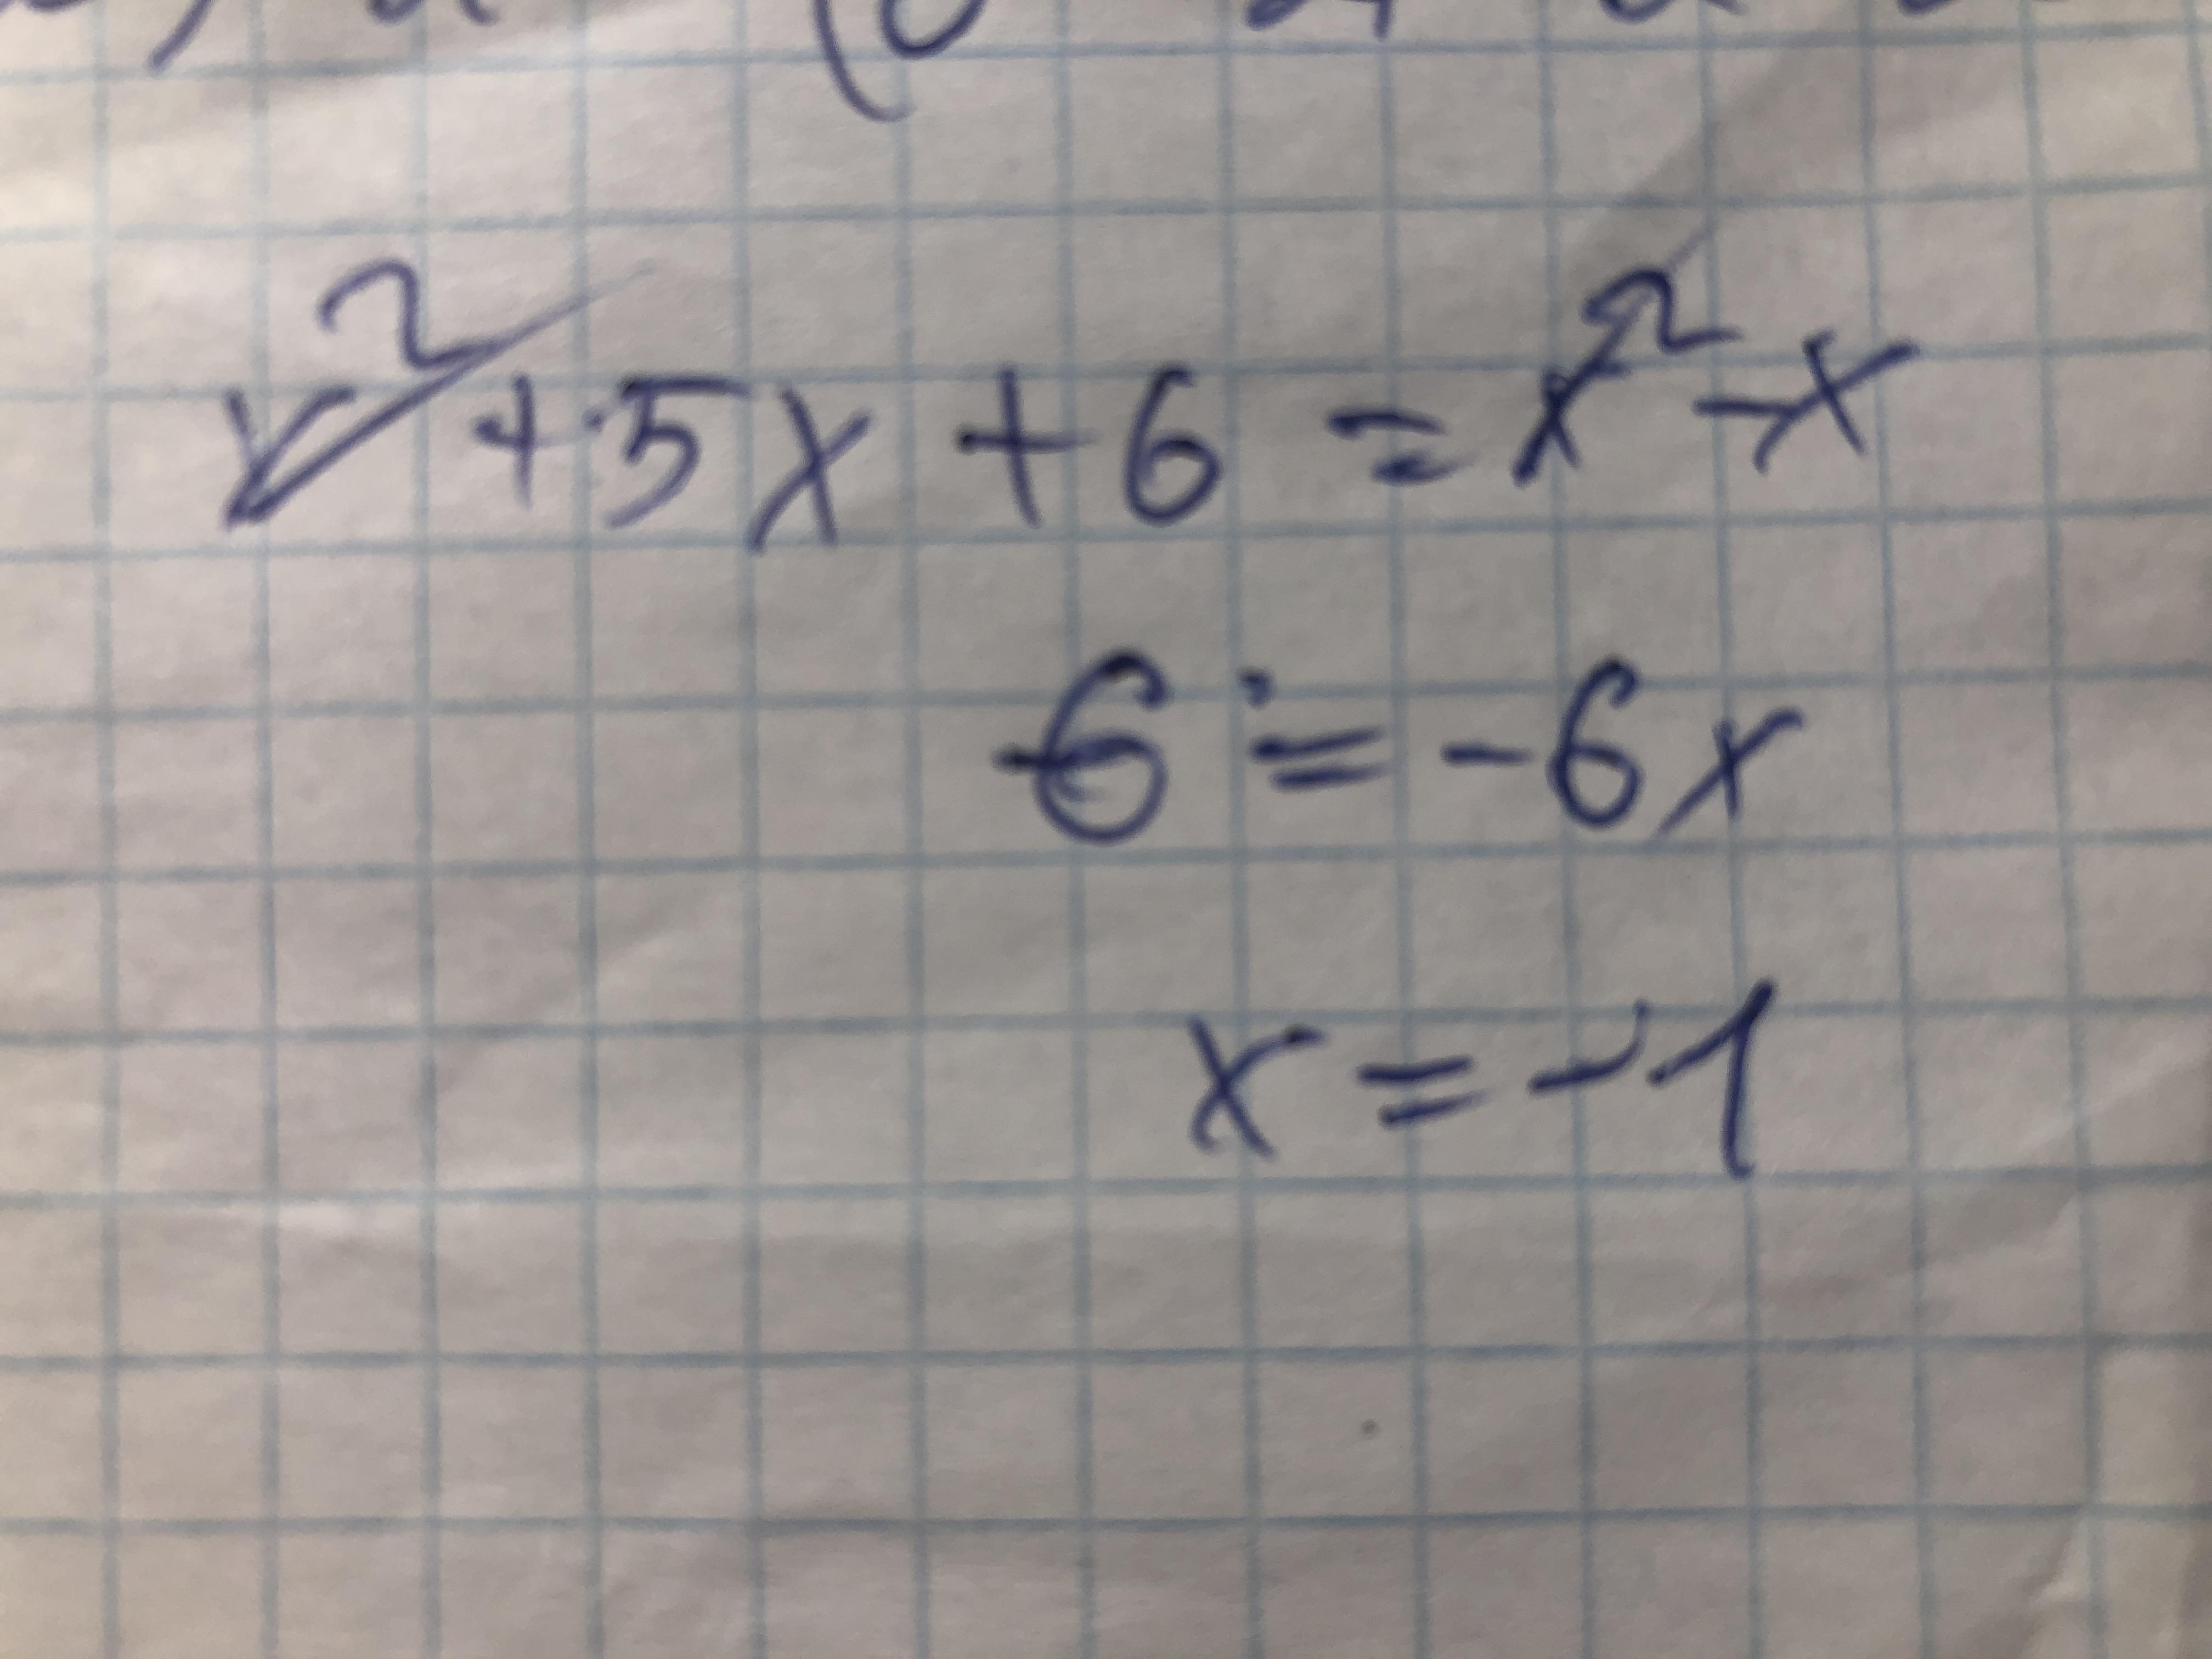 x² + 5x + 6 = x² - x
6 = -6x
x = -1